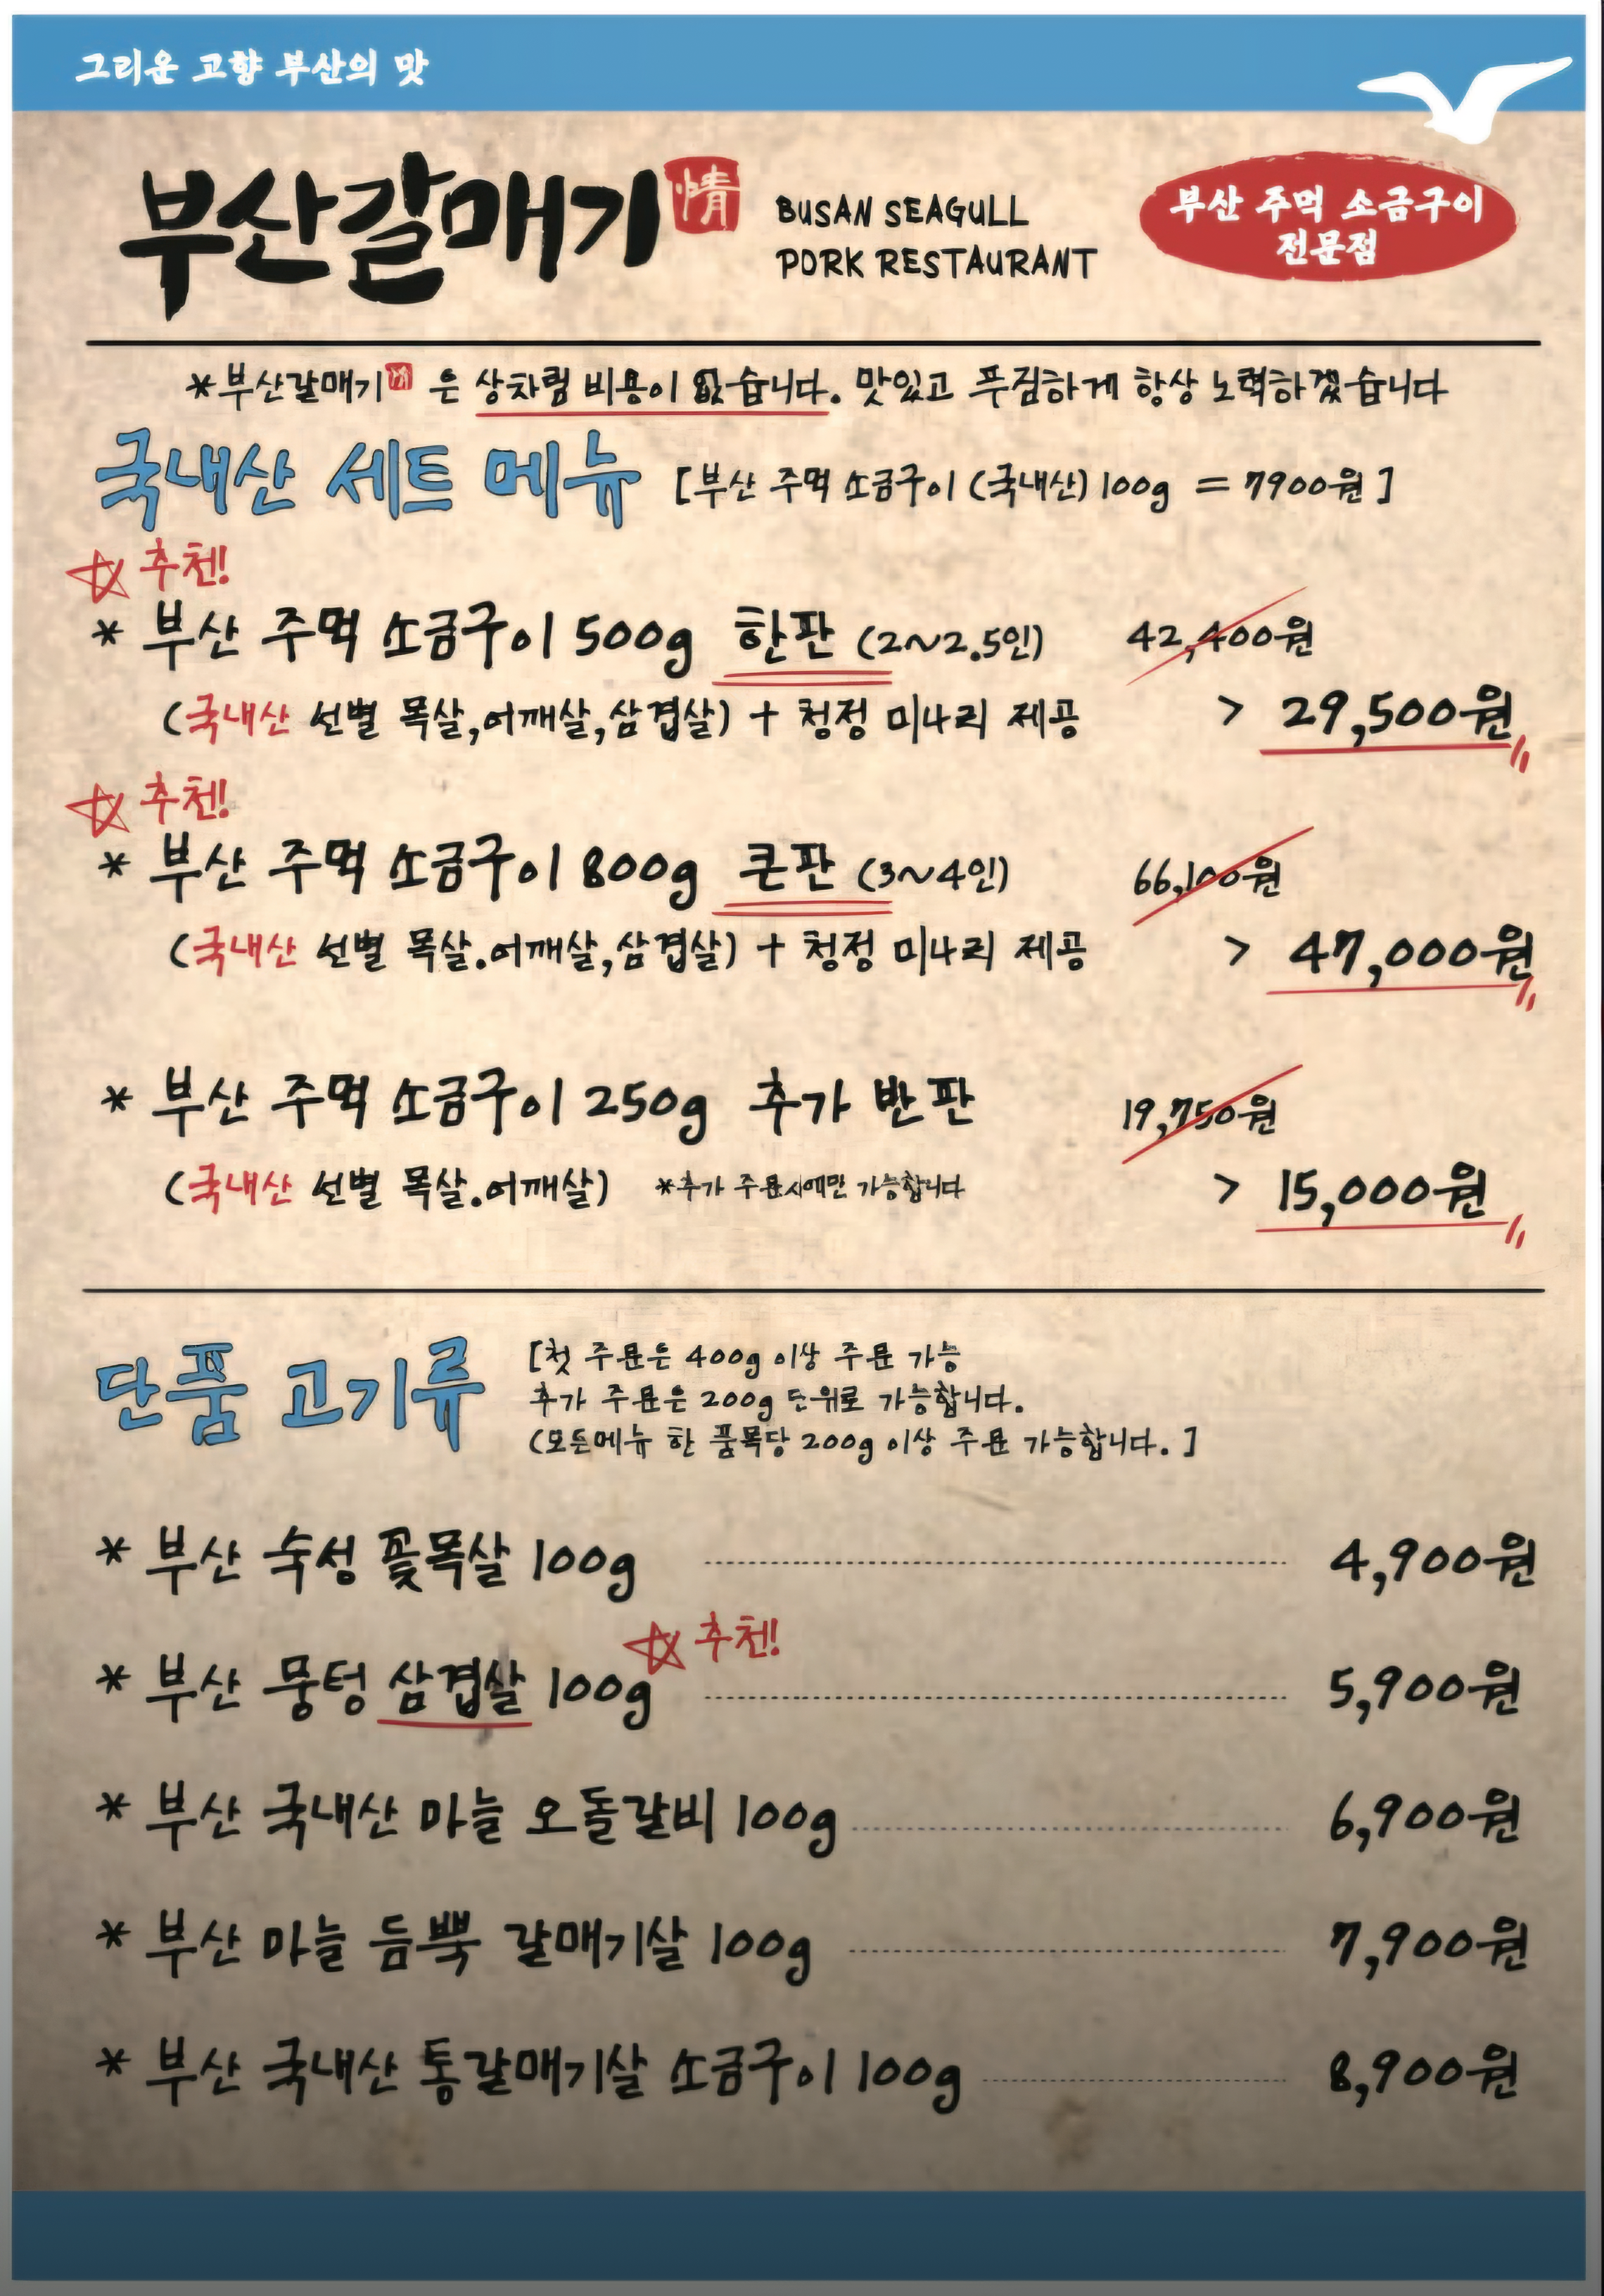 그리운 고향 부산의 맛
부산갈매기 情
BUSAN SEAGULL
PORK RESTAURANT
부산 주먹 소금구이
전문점
*부산갈매기 은 상차림 비용이 없습니다. 맛있고 푸짐하게 항상 노력하겠습니다
국내산 세트 메뉴 [부산 주먹 소금구이 (국내산) 100g = 7900원]
☆ 추천!
* 부산 주먹 소금구이 500g 한판 (2~2.5인) 42,400원
(국내산 선별 목살,어깨살,삼겹살) + 청정 미나리 제공 > 29,500원
☆ 추천!
* 부산 주먹 소금구이 800g 큰판 (3~4인) 66,100원
(국내산 선별 목살.어깨살,삼겹살) + 청정 미나리 제공 > 47,000원
* 부산 주먹 소금구이 250g 추가 반판 19,750원
(국내산 선별 목살.어깨살) *추가 주문시에만 가능합니다 > 15,000원
단품 고기류
[첫 주문은 400g 이상 주문 가능
추가 주문은 200g 단위로 가능합니다.
(모든메뉴 한 품목당 200g 이상 주문 가능합니다. ]
* 부산 숙성 꽃목살 100g 4,900원
☆ 추천!
* 부산 뭉텅 삼겹살 100g 5,900원
* 부산 국내산 마늘 오돌갈비 100g 6,900원
* 부산 마늘 듬뿍 갈매기살 100g 7,900원
* 부산 국내산 통갈매기살 소금구이 100g 8,900원